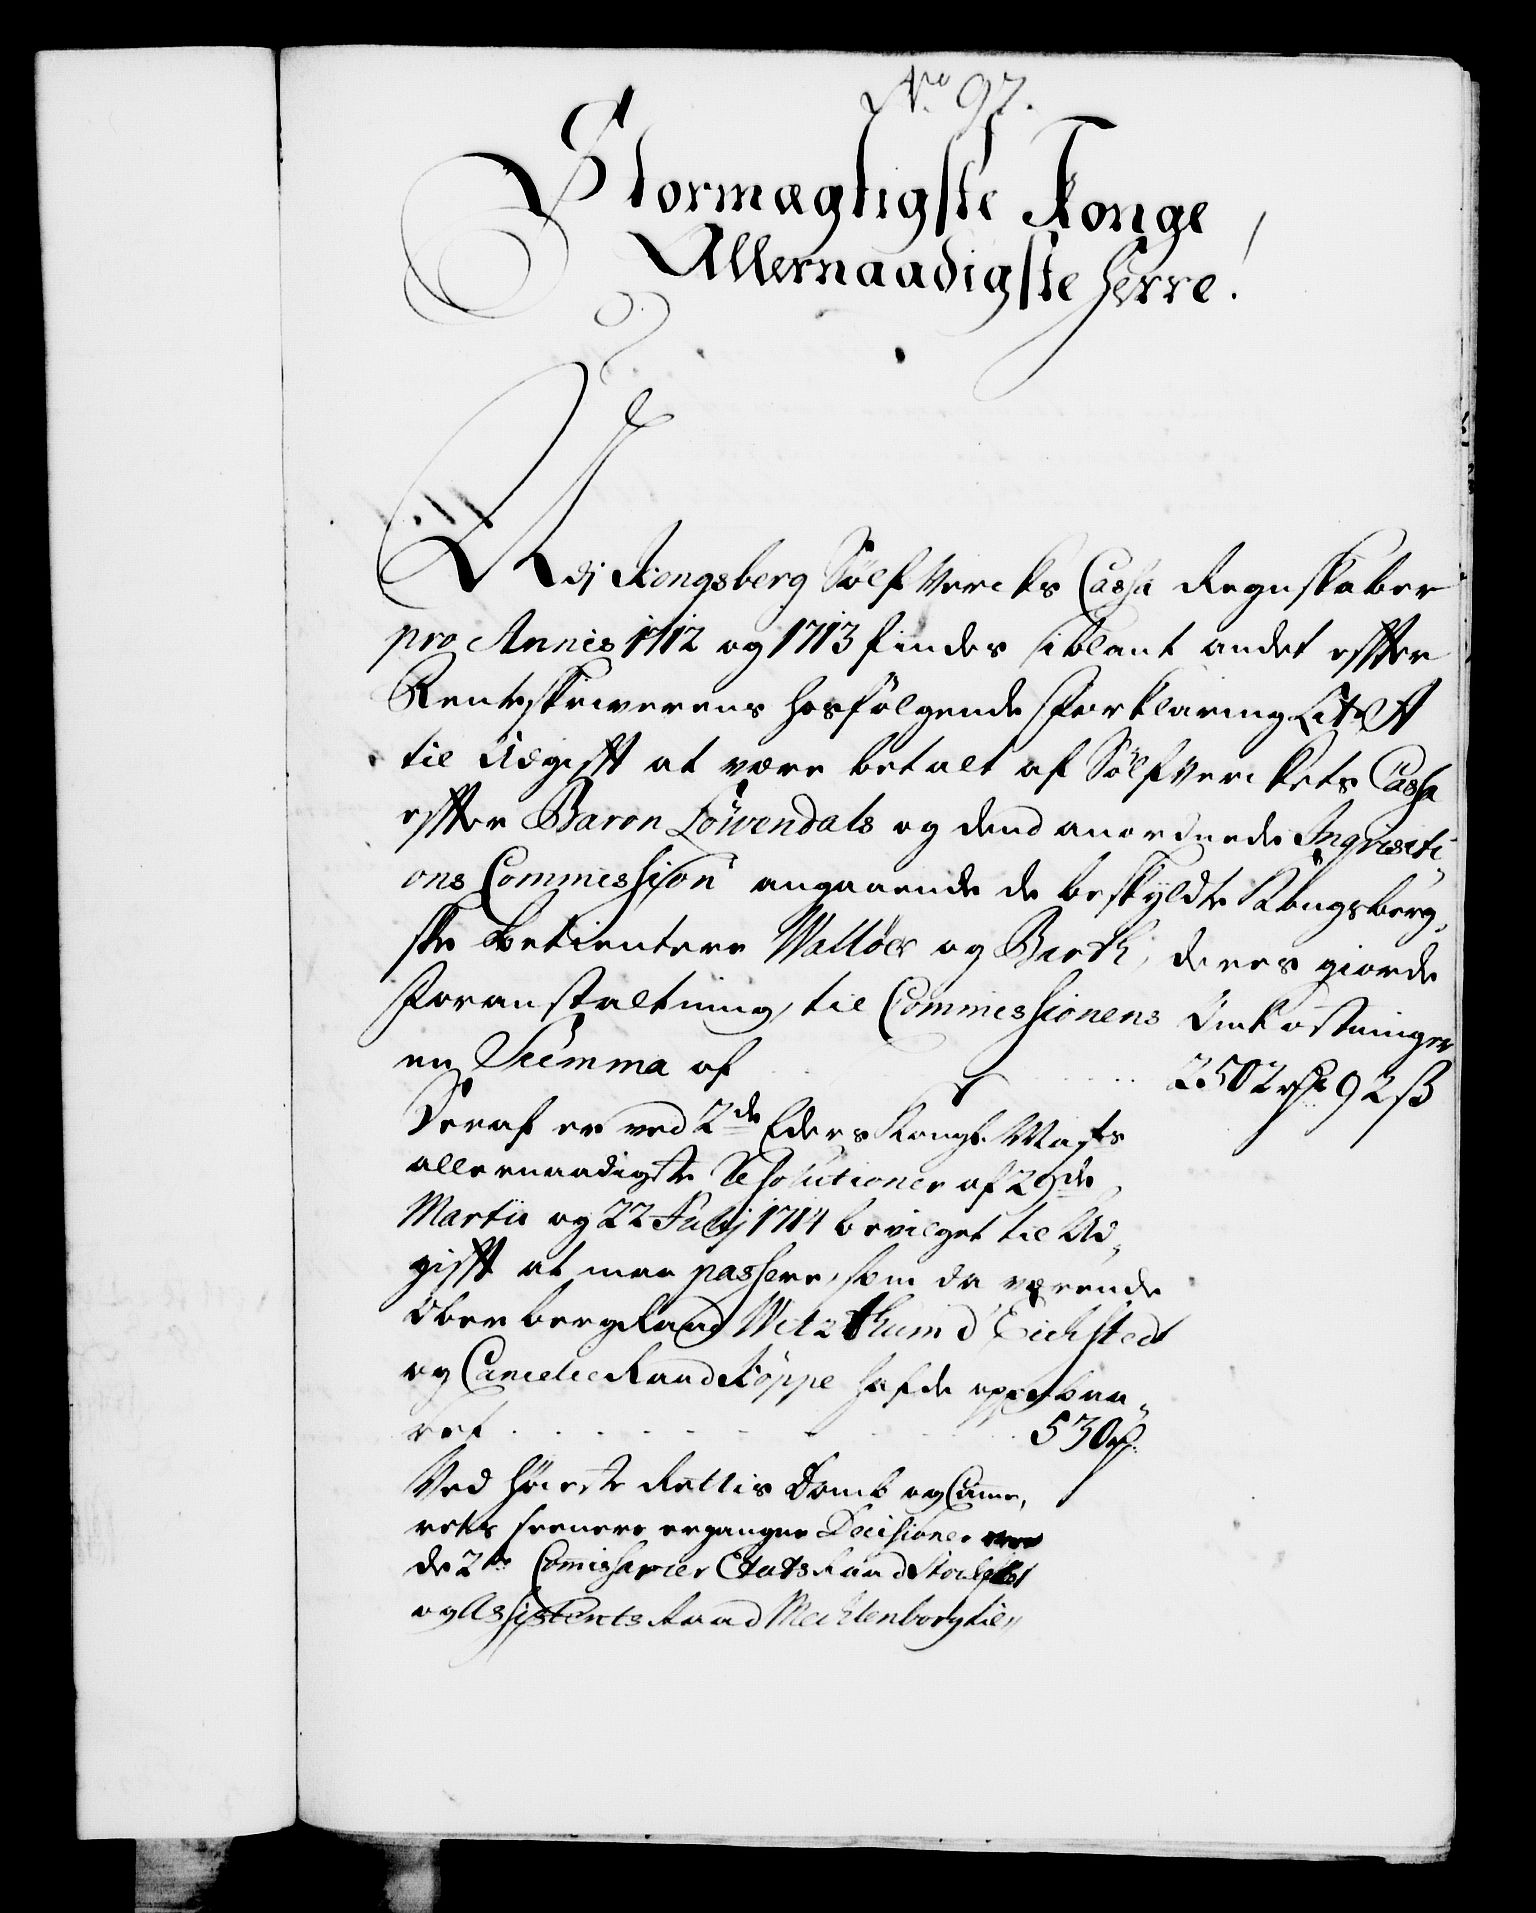 No 97.
Stormægtigste Konge
Allernaadigste Herre!
Udj Kongsberg Sølf Vercks Cassa Regnskaber
pro Annis 1712 og 1713 findes iblant andet effter
Renteskriverens hosfølgende Forklaring Lit. A
til Udgifft at være betalt af Sølf Verckets Cassa
effter Baron Löwendals og dend anordnede Inqvisiti„
ons Commission angaaende de beskyldte Kongsberg„
ske Betientere Walløer og Barth, deres giorde
Foranstaltning, til Commissionens Omkostninger
en Summa af . . . . . 2502 rdr 92 ß
Deraf er ved 2de Eders Kongl. Mayts
allernaadigste Resolutioner af 29de
Martii og 22 Julij 1714 bevilget til Ud„
gifft at maa passere, som da værende
Oberberg Raad Witzthum d'Eichstedt
og Cancelie Raad Köppe hafde oppebaa„
ret . . . . . . . 530 rdr
Ved Høieste Rettis Domb og Camme„
rets seenere ergangne Decisioner
de 2de Commissarier Etats Raad
og Assistents Raad Mechlenborg til„